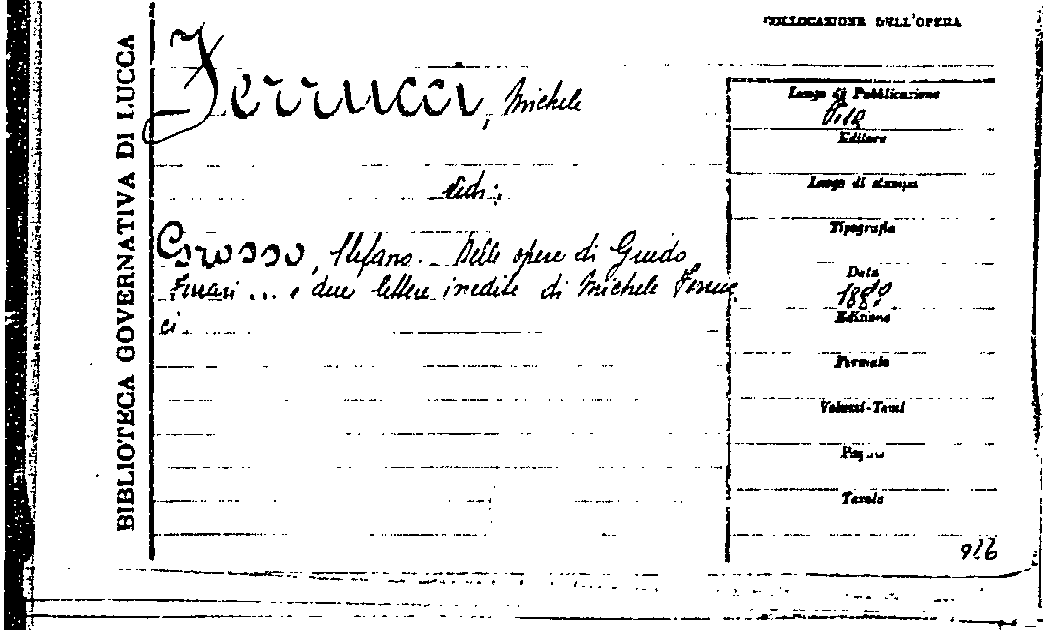 COLLOCAZIONE DELL'OPERA
BIBLIOTECA GOVERNATIVA DI LUCCA
Ferrucci, Michele
vedi:
Grosso, Stefano. Delle opere di Guido
Ferrari ... e due lettere inedite di Michele Ferruc
ci.
Luogo di Pubblicazione
Pisa
Editore
Luogo di stampa
Tipografia
Data
188
Edizione
Formato
Volumi-Tomi
Pagine
Tavole
926